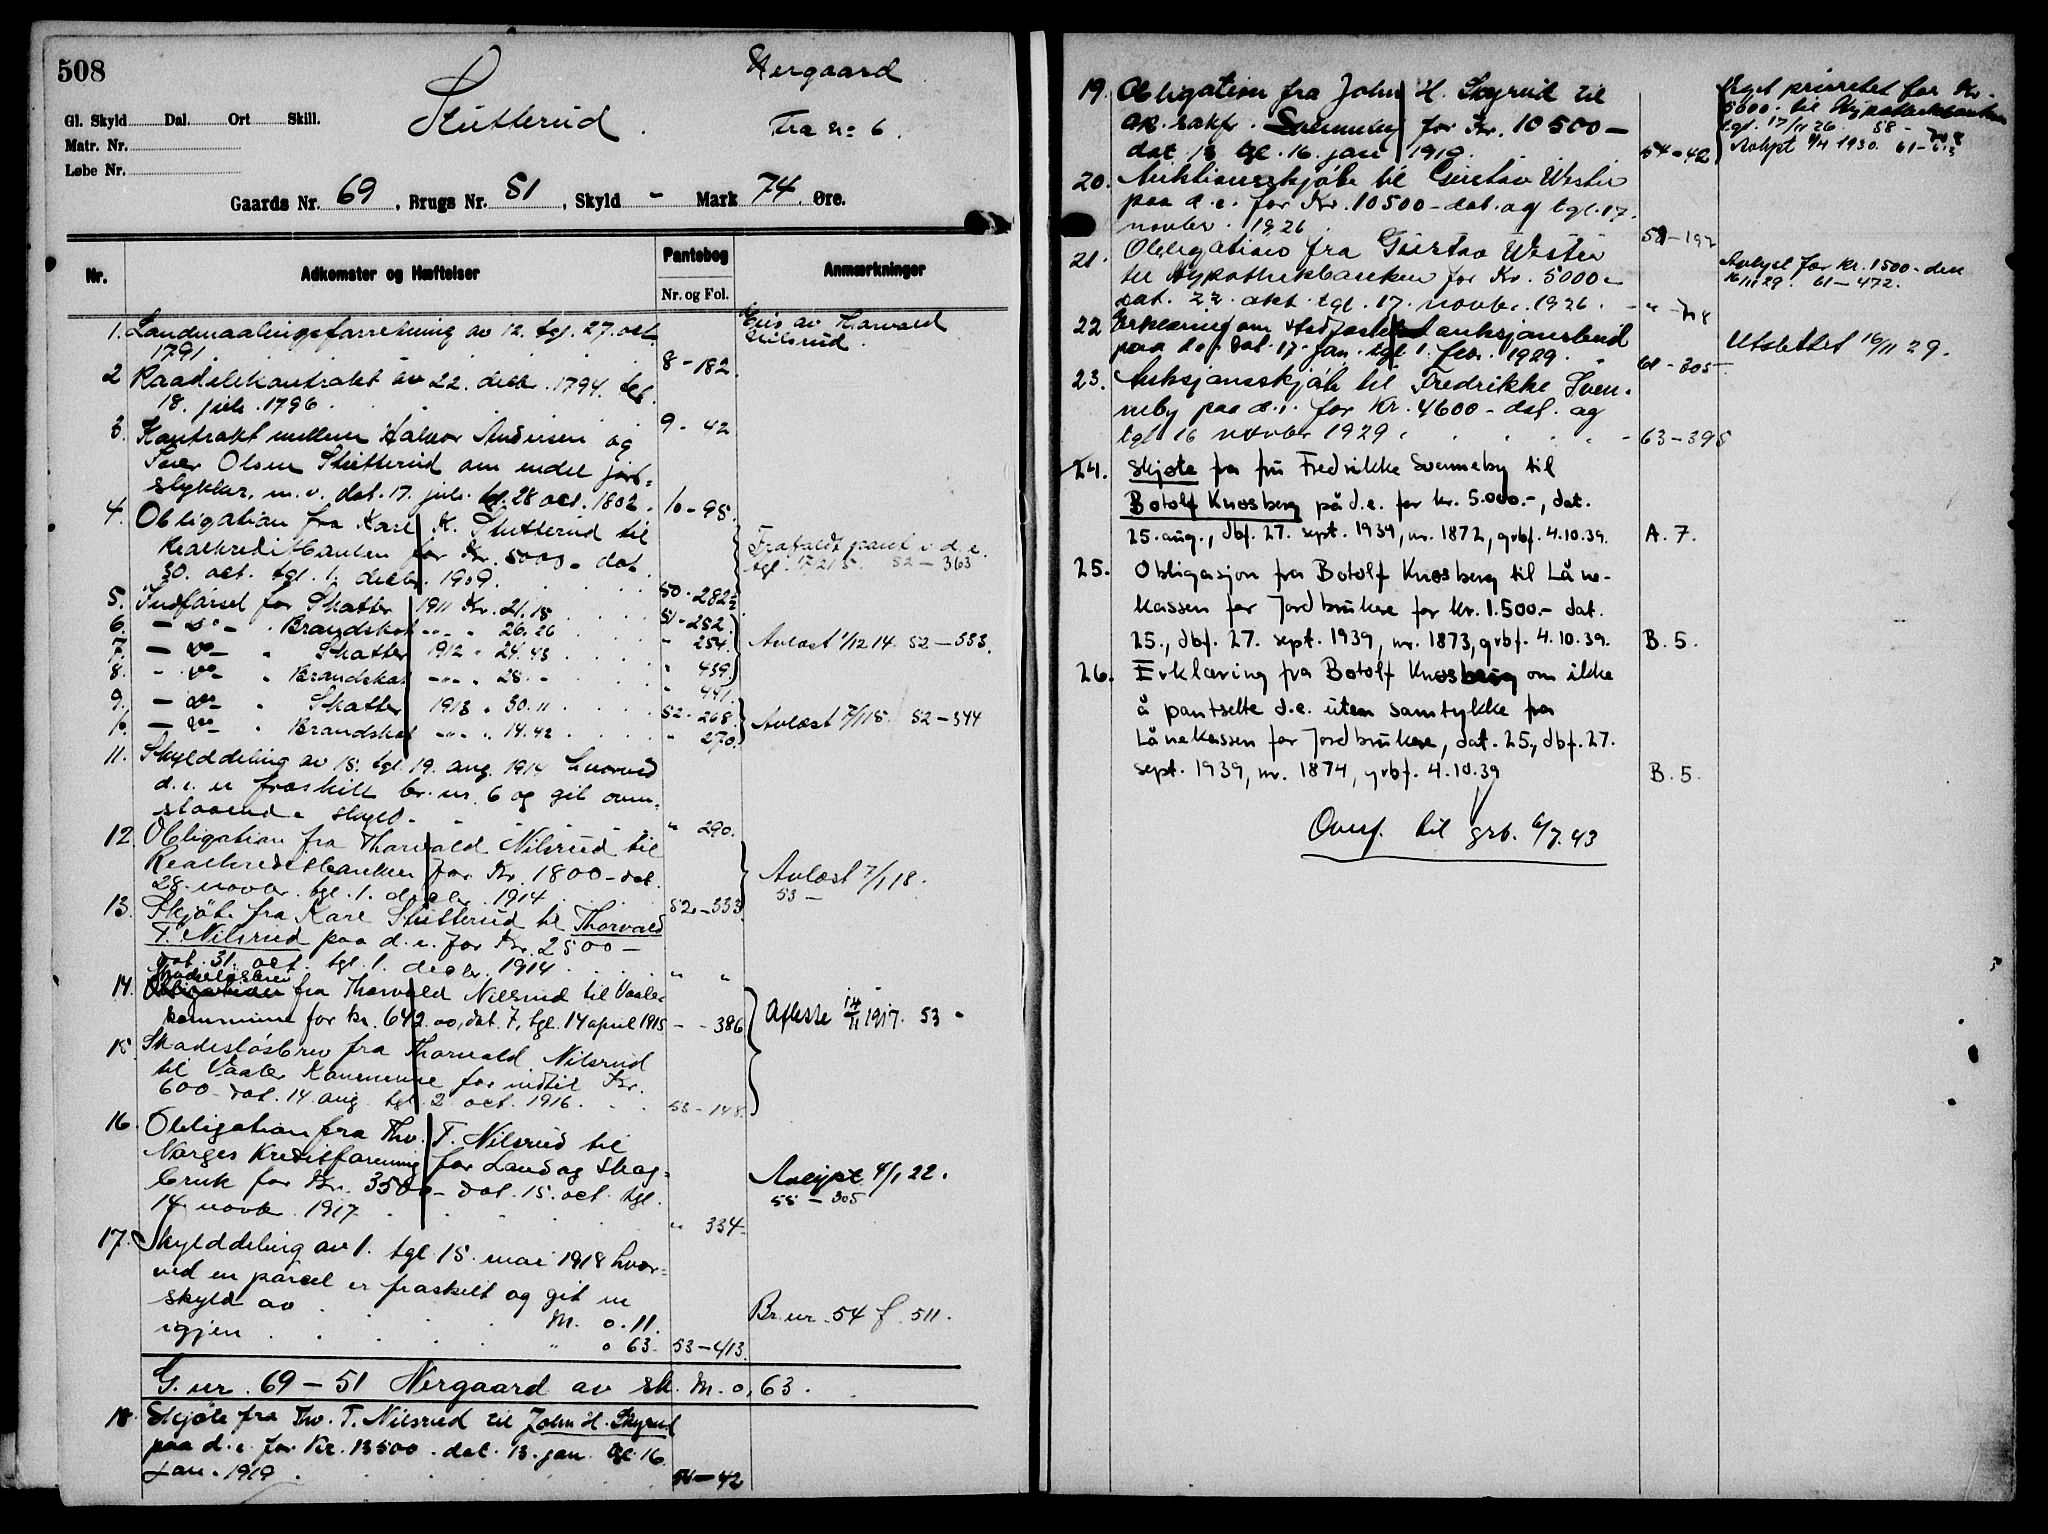 508
Stutterud.
Nergaard
Fra no 6.
Gl. Skyld Dal. Ort Skill.
Matr. Nr.
Løbe Nr.
Gaards Nr. 69, Brugs Nr. 51, Skyld - Mark 74 Øre.
Nr. Adkomster og Hæftelser Pantebog Anmærkninger
Nr. og Fol.
1. Landmaalingsforretning av 12. tgl. 27. oct.
1791. 8-182.
Eies av Thorvald
Nilsrud.
2 Raadelekontrakt av 22. decbr. 1794. tgl.
18. juli. 1796. 9-42
3. Kontrakt mellem Halvor Andersen og
Iver Olsen Stutterud om endel jord-
stykker, m.v. dat. 17. juli. tgl. 28 oct. 1802. 10-95.
4. Obligation fra Kare K. Stutterud til
Realkreditbanken for Kr. 5000- dat.
30. oct. tgl. 1. decbr. 1909. 50-282½
Frafaldt pant i d.e.
52-363
5. Indførsel for Skatter 1911 Kr. 21.18 51-252
6. - do - " Brandskat -"- " 26.26 " 254.
7. - do - " Skatter 1912 " 24.43 " 439.
8. - do - " Brandskat -"- " 28.- " 441.
Avløst 1/12 14. 52-333.
9. - do - " Skatter 1913 " 30.11 52-268.
10. - do - " Brandskat -"- " 14.42 " 270.
Avløst 7/1 15. 52-344
11. Skylddeling av 15. tgl. 19. aug. 1914 hvorved
d.e. er fraskilt br. nr. 6 og git oven-
staaende skyld. " 290.
12. Obligation fra Thorvald Nilsrud til
Realkreditbanken for Kr. 1800- dat.
28. novbr. tgl. 1. decbr. 1914 52-333
Avløst 7/1 18.
53-
13. Skjøte fra Kare Stutterud til Thorvald
T. Nilsrud paa d.e. for Kr. 2500-
dat. 31. oct. tgl. 1. decbr. 1914. " "
Skadesløsbrev
14. Obligation fra Thorvald Nilsrud til Vaaler
kommune for kr. 642.00, dat. 7, tgl. 14 april 1915 - - 386
Aflæste 14/11 1917. 53-
15. Skadesløsbrev fra Thorvald Nilsrud
til Vaaler Kommune for indtil Kr.
600- dat. 14. aug. tgl. 2. oct. 1916. 53-148.
16. Obligation fra Thv. T. Nilsrud til
Norges Kreditforening for Land og Skog-
bruk for Kr. 3500- dat. 15. oct. tgl.
14. novbr. 1917. " 334-
Avlyst 4/1 22.
55-305
17. Skylddeling av 1. tgl. 15. mai 1918 hvor-
ved en parcel er fraskilt og git en
skyld av M. 0.11.
igjen " 0 63. 53-413.
Br. nr. 54 f. 511.
G. nr. 69-51 Nergaard av sk. M. 0,63.
18. Skjøte fra Thv. T. Nilsrud til John H. Skyrud
paa d.e. for Kr. 13500- dat. 13. jan. tgl. 16.
jan. 1919. 54-42
19. Obligation fra John H. Skyrud til
o.r. sakf. Svenneby for Kr. 10500-
dat. 13 tgl. 16. jan 1919. 54-42
Veget prioritet for Kr.
5000- til Hypotekbanken
tgl. 17/11 26. 58-
Avlyst 1930. 61-
20. Auktionsskjøte til Gustav Westin
paa d.e. for Kr. 10500- dat. og tgl. 17.
novber. 1926. 58-192
21. Obligation fra Gustav Westin
til Hypothekbanken for Kr. 5000-
dat. 22. okt. tgl. 17. novbr. 1926.
Avlyst for kr. 1500- den
16/11 29. 61-472.
22 Erklæring om stadfæstet auksjonsbud
paa d.e. dat. 17. jan. tgl. 1. febr. 1929. 61-305
Utslettet 16/11 29.
23. Auksjonsskjøte til Fredrikke Sven-
neby paa d.e. for Kr. 4600- dat. og
tgl. 16 novbr 1929. 63-395
24. Skjøte fra fru Fredrikke Svenneby til
Botolf Knosberg på d.e. for kr. 5.000.-, dat.
25. aug., dbf. 27. sept. 1939, nr. 1872, grbf. 4.10.39. A. 7.
25. Obligasjon fra Botolf Knosberg til Låne-
kassen for Jordbrukere for kr. 1.500.- dat.
25., dbf. 27. sept. 1939, nr. 1873, grbf. 4.10.39. B. 5.
26. Erklæring fra Botolf Knosberg om ikke
å pantsette d.e. uten samtykke fra
Lånekassen for Jordbrukere, dat. 25., dbf. 27.
sept. 1939, nr. 1874, grbf. 4.10.39 B. 5.
Overf. til grb. 6/7.43